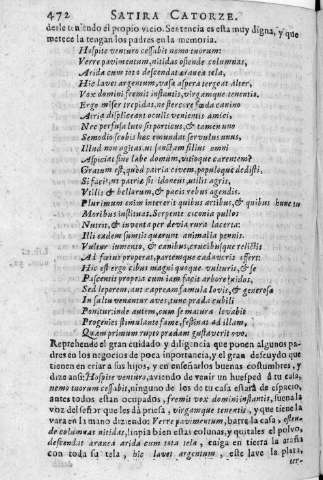 472 SATIRA CATORZE.
dese teniendo el propio vicio. Sentencia es esta muy digna, y que
merece la tengan los padres en la memoria.
Hospite venturo cessabit nemo tuorum:
Verre pavimentum, nitidas ostende columnas,
Arida cum tota descendat aranea tela,
Hic lavet argentum, vasa aspera tergeat alter,
Vox domini fremit instantis, virgamque tenentis.
Ergo miser trepidas, ne stercore fœda canino
Atria displiceant oculis venientis amici,
Nec perfusa luto sit porticus, & tamen uno
Semodio scobis hæc emundat servulus unus,
Illud non agitas, ut sanctam filius omni
Aspiciat sine labe domum, vitioque carentem?
Gratum est, quod patriæ civem, populoque dedisti,
Si facis, ut patriæ sit idoneus, utilis agris,
Vtilis & bellorum, & pacis rebus agendis.
Plurimum enim intererit quibus artibus, & quibus hunc tu
Moribus instituas. Serpente ciconia pullos
Nutrit, & inventa per devia rura lacerta:
Illi eadem sumptis quærunt animalia pennis.
Vultur iumento, & canibus, crucibusque relictis
Ad fœtus properat, partemque cadaveris affert:
Hic est ergo cibus magni quoque vulturis, & se
Pascentis propria cum iam facit arbore nidos,
Sed leporem, aut capream famula Iovis, & generosa
In saltu venantur aves, tunc præda cubili
Ponitur: inde autem, cum se matura levabit
Progenies stimulante fame, festinat ad illam,
Quam primum rupto prædam gustaverit ovo.
Reprehende el gran cuidado y diligencia que ponen algunos padres
en los negocios de poca inportancia, y el gran descuydo que
tienen en criar a sus hijos, y en enseñarlos buenas costumbres, y
dize ansi: Hospite venturo, aviendo de venir un huesped á tu casa,
nemo tuorum cessabit, ninguno de los de tu casa estará de espacio,
antes todos estan ocupados, fremit vox domini instantis, suena la
voz del señor que les dá priesa, virgamque tenentis, y que tiene la
vara en la mano diziendo: Verre pavimentum, barre la casa, ostende
columnas nitidas, linpia bien estas colunas, y quitales el polvo,
descendat aranea arida cum tota tela, caiga en tierra la araña
con toda su tela, hic lavet argentum, este lave la plata,